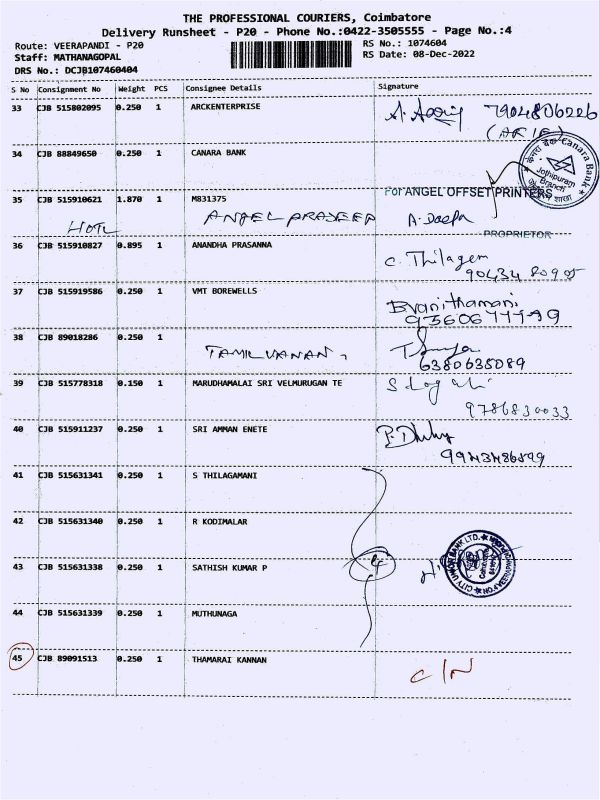 THE PROFESSIONAL COURIERS, Coimbatore
Delivery Runsheet - P20 - Phone No.:0422-3505555 - Page No.:4
Route: VEERAPANDI - P20
RS No.: 1074604
Staff: MATHANAGOPAL
RS Date: 08-Dec-2022
DRS No.: DCJB107460404
S No Consignment No Weight PCS Consignee Details Signature
33 CJB 515802095 0.250 1 ARCKENTERPRISE
34 CJB 88849650 0.250 1 CANARA BANK
Canara Bank
Jothipuram
Branch
35 CJB 515910621 1.870 1 M831375
For ANGEL OFFSET PRINTERS
HOTL ANGEL PRADEEP A. Deepa
PROPRIETOR
36 CJB 515910827 0.895 1 ANANDHA PRASANNA
C. Thilagem
37 CJB 515919586 0.250 1 VMT BOREWELLS
Bvanithamani
38 CJB 89018286 0.250 1
TAMILVANAN,
6380635089
39 CJB 515778318 0.150 1 MARUDHAMALAI SRI VELMURUGAN TE
9786830033
40 CJB 515911237 0.250 1 SRI AMMAN ENETE
41 CJB 515631341 0.250 1 S THILAGAMANI
42 CJB 515631340 0.250 1 R KODIMALAR
43 CJB 515631338 0.250 1 SATHISH KUMAR P
4
CITY UNION BANK LTD.
44 CJB 515631339 0.250 1 MUTHUNAGA
45 CJB 89091513 0.250 1 THAMARAI KANNAN
C/N